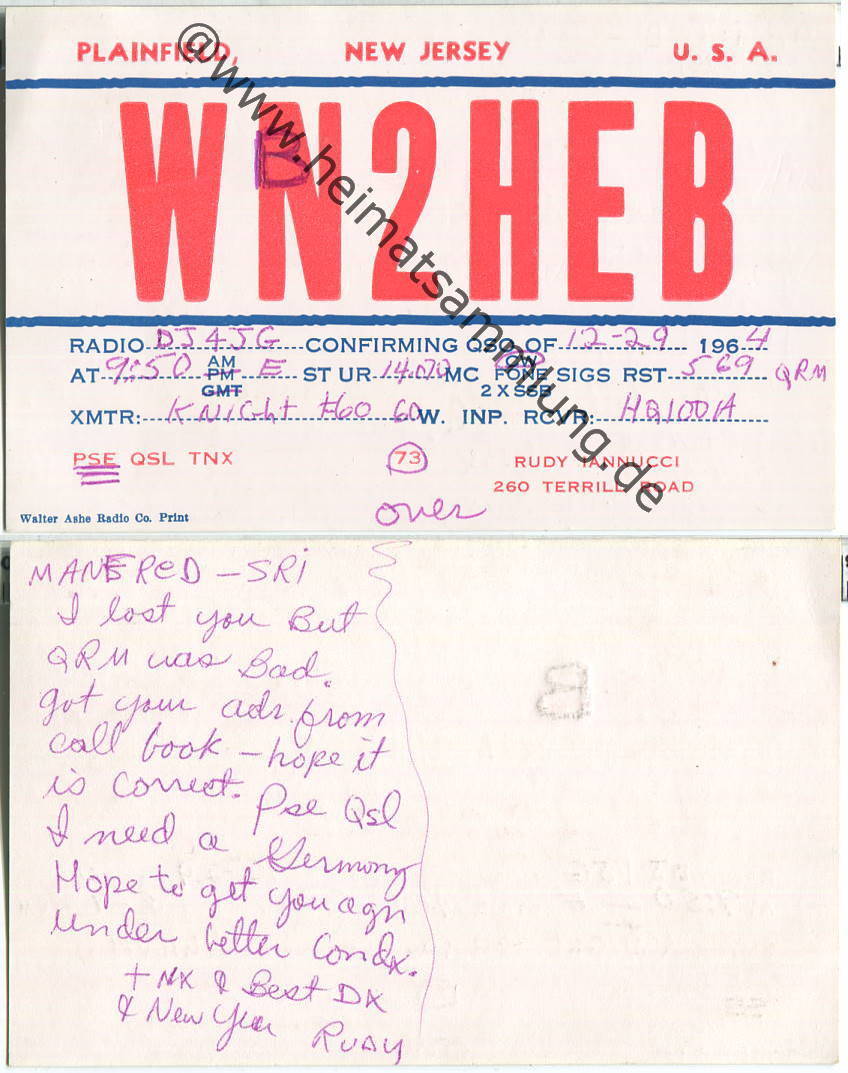 PLAINFIELD, NEW JERSEY U. S. A.
WN2HEB
B
@www.heimatsammlung.de
RADIO DJ4JG CONFIRMING QSO OF 12-29 1964
AM CW
AT 9:50 PM E ST UR 14.070 MC FONE SIGS RST 569 QRM
GMT 2 X SSB
XMTR: KNIGHT T60 60 W. INP. RCVR: HQ100A
PSE QSL TNX 73 RUDY IANNUCCI
260 TERRILL ROAD
Walter Ashe Radio Co. Print
over
MANFRED - SRI
I lost you But
QRM was Bad.
got your adr. from
call book - hope it
is correct. Pse Qsl
I need a Germony
Hope to get you agn
under better Condx.
+ NX & Best DX
& New Year
RUDY